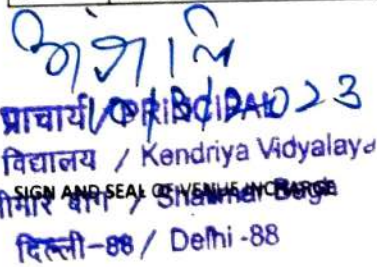 प्राचार्य / PRINCIPAL
विद्यालय / Kendriya Vidyalaya
SIGN AND SEAL OF VENUE INCHARGE
बाग / Shalimar Bagh
दिल्ली-88 / Delhi -88